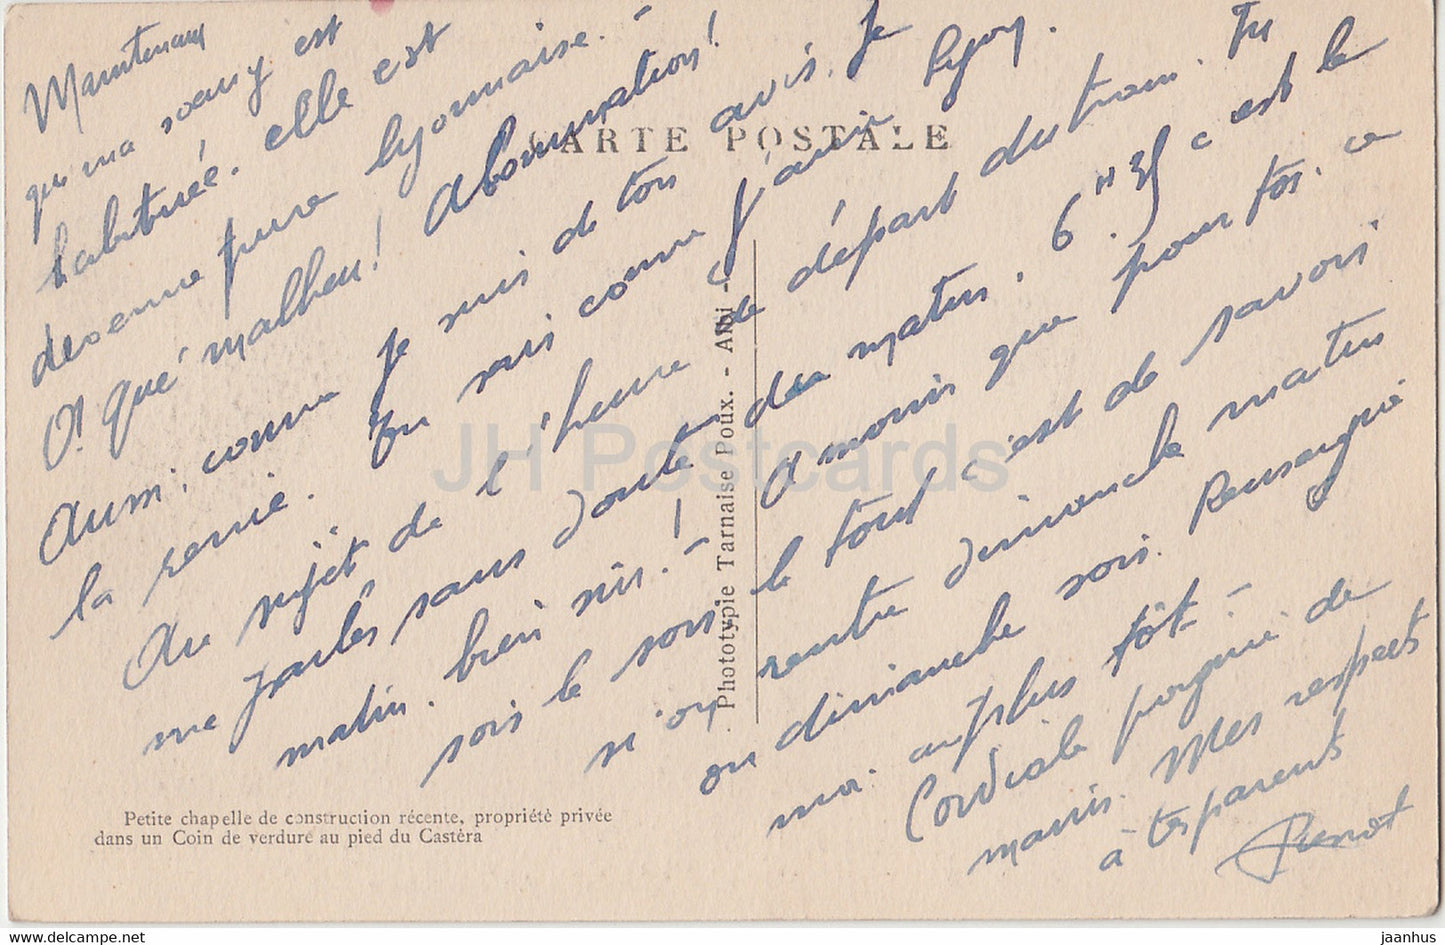 CARTE POSTALE
Maintenant
que ma soeur y est
habituée. elle est
devenue pure lyonnaise.-
O! qué malheu! Abomination!
Aussi, comme je suis de ton avis. Je
la renie. Tu sais comme j'aime Lyon.
Au sujet de l'heure de départ du train. Tu
me parles sans doute du matin. 6H35 c'est le
matin. bien sûr.-! A moins que pour toi. ce
sois le soir, le tout c'est de savoir
si on rentre dimanche matin
ou dimanche soir. Renseigne
moi. au plus tôt-
Cordiale poignée de
mains. Mes respects
à tes parents
Pierrot
Petite chapelle de construction récente, propriété privée
dans un Coin de verdure au pied du Castéra
Phototypie Tarnaise Poux. - Albi -
JH Postcards
www.delcampe.net
jaanhus